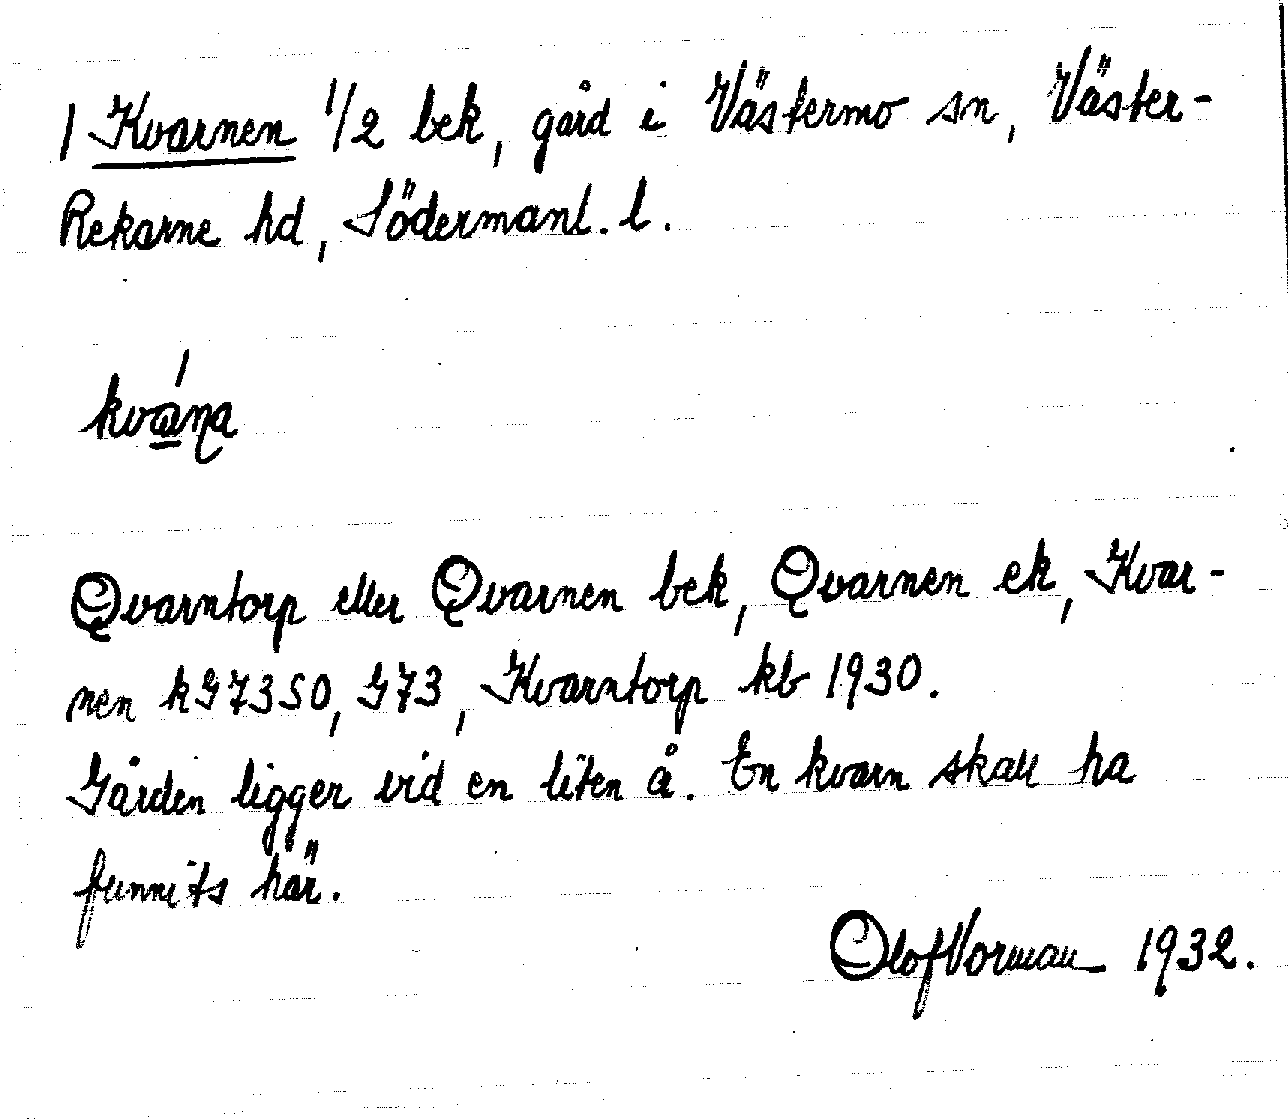 1 Kvarnen 1/2 bek, gård i Västermo sn, Väster-
Rekarne hd, Södermanl. l.
kvá̲ɳa
Qvarntorp eller Qvarnen bek, Qvarnen ek, Kvar-
nen kG7350, G73, Kvarntorp kb 1930.
Gården ligger vid en liten å. En kvarn skall ha
funnits här.
Olof Vorman 1932.